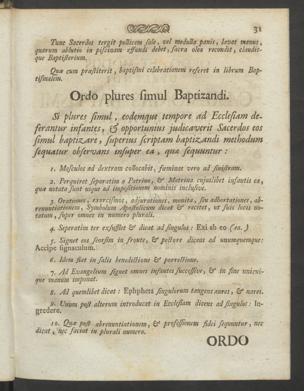 31
Tunc Sacerdos tergit pollicem sale, vel medulla panis, lavat manus,
quarum ablutio in piscinam effundi debet, sacra olea recondit, clauditque
Baptisterium.
Quæ cum præstiterit, baptismi celebrationem referet in librum Baptismalem.
Ordo plures simul Baptizandi.
Si plures simul, eodemque tempore ad Ecclesiam deferantur
infantes, & opportunius judicaverit Sacerdos eos
simul baptizare, superius scriptam baptizandi methodum
sequatur observans insuper ea, quæ sequuntur:
1. Masculos ad dextram collocabit, fœminas vero ad sinistram.
2. Perquiret separatim a Patrino, & Matrina cujuslibet infantis ea,
quæ notata sunt usque ad impositionem nominis inclusive.
3. Orationes, exorcismos, adjurationes, monita, seu adhortationes, abrenuntiationem,
Symbolum Apostolicum dicat & recitet, ut suis locis notatum,
super omnes in numero plurali.
4. Separatim ter exsufflet & dicat ad singulos: Exi ab eo (ea.)
5. Signet eos seorsim in fronte, & pectore dicens ad unumquemque:
Accipe signaculum.
6. Idem fiet in salis benedictione & porrectione.
7. Ad Evangelium signet omnes infantes successive, & in fine unicuique
manum imponat.
8. Ad quemlibet dicat: Ephpheta singulorum tangens aures, & nares.
9. Unum post alterum introducat in Ecclesiam dicens ad singulos: Ingredere.
10. Quæ post abrenuntiationem, & professionem fidei sequuntur, nec
dicat, nec faciat in plurali numero.
ORDO